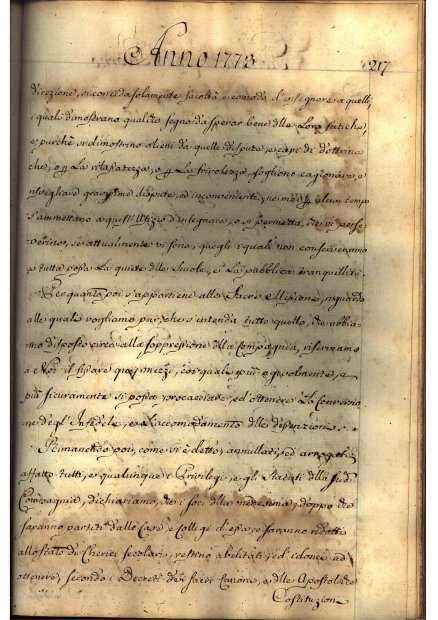 Anno 1773
217
direzione, si conceda solamente facoltà, e comodo d'insegnare a quelli,
i quali dimostrano qualche segno da sperar bene delle Loro fatiche,
e purchè si dimostrino alieni da quelle dispute, e capi di dottrina
che, o La rilassatezza, o La frivolezza, sogliono cagionare, e
risvegliare gravissime dispute, ed inconvenienti, alcun tempo
s'ammettano a quest'Ufizio d'insegnare, o si permetta, che vi perse-
verino, se attualmente vi sono, quegli i quali non conserveranno
a tutta possa La quiete delle Scuole, e La pubblica tranquillità.
Per quanto poi s'appartiene alle Sacre Missioni, riguardo
alle quali vogliamo pur che s'intenda tutto quello, che abbia-
mo disposto circa alla soppressione della Compagnia, riserviamo
a Noi il fissare quei mezzi, coi quali più agevolmente, e
più sicuramente si possa procacciare, ed ottenere La Conversio-
ne degl' Infedeli, e L'accomodamento delle dissenzioni.
Rimanendo poi, come si è detto, annullati, ed arrogati
affatto tutti, e qualunque Privilegi, e gli Statuti della sud.
Compagnia, dichiariamo, che i soci della medesima, doppo che
saranno partiti dalle Case, e Collegi d'essa, e saranno ridotti
allo stato di Cherici secolari, restino abilitati, ed idonei ad
ottenere, secondo i Decreti dei sacri Canoni, e delle Apostoliche
Costituzioni